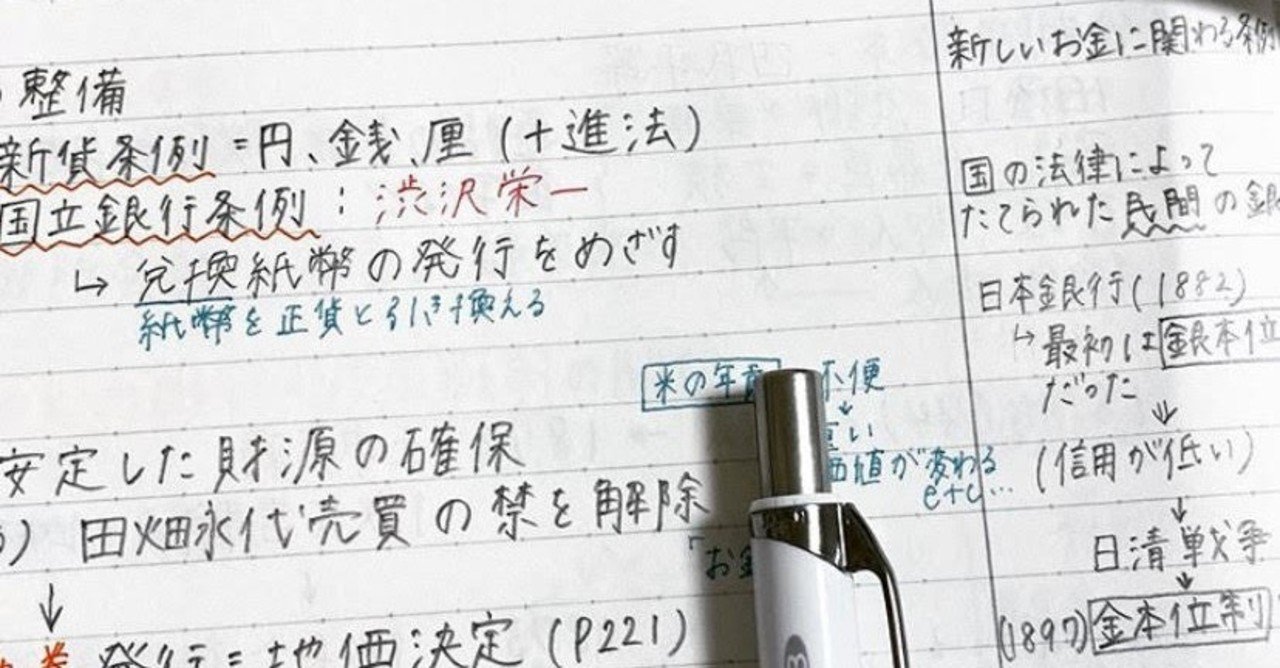 整備
新貨条例=円、銭、厘(十進法)
国立銀行条例:渋沢栄一
↳兌換紙幣の発行をめざす
紙幣を正貨と引き換える
米の年貢 不便
↓
重い
価値が変わる
etc…
安定した財源の確保
)田畑永代売買の禁を解除
「お金
↓
発行=地価決定(P221)
新しいお金に関わる条例
国の法律によって
たてられた民間の銀
日本銀行(1882)
↳最初は銀本位
だった
↓
(信用が低い)
↓
日清戦争
↓
(1897)金本位制